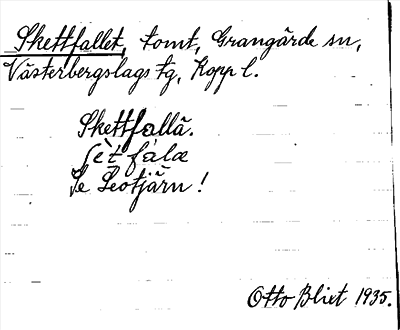 Skettfallet, tomt, Grangärde sn,
Västerbergslags tg, Kopp l.
Skettfallä.
ʃèt fàlæ
Se Leotjärn!
Otto Blixt 1935.